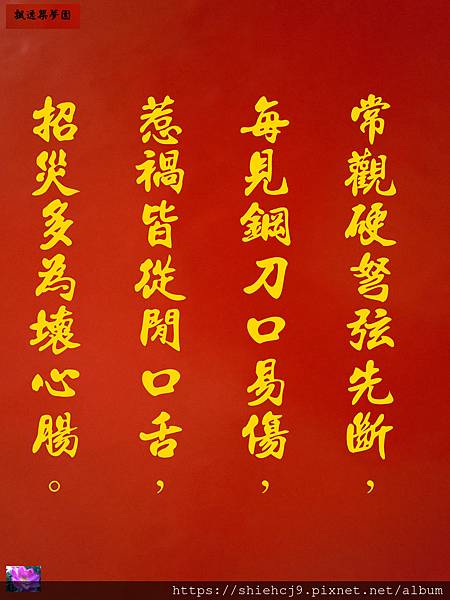 飄逸築夢園
常觀硬弩弦先斷，
每見鋼刀口易傷，
惹禍皆從閒口舌，
招災多為壞心腸。
https://shiehcj9.pixnet.net/album